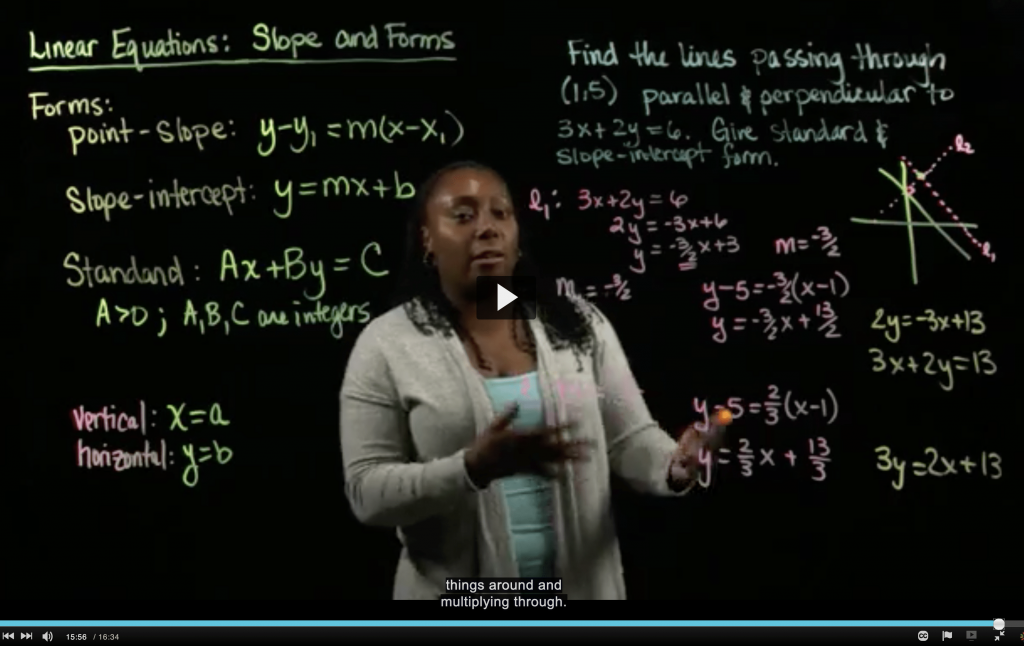 Linear Equations: Slope and Forms
Forms:
point-slope: y-y₁ = m(x-x₁)
Slope-intercept: y = mx+b
Standard: Ax+By = C
A>0; A,B,C are integers
vertical: x=a
horizontal: y=b
Find the lines passing through
(1,5) parallel & perpendicular to
3x+2y=6. Give standard &
slope-intercept form.
l₁: 3x+2y=6
2y=-3x+6
y=-3/2x+3
m=-3/2
m=-3/2
y-5=-3/2(x-1)
y=-3/2x+13/2
2y=-3x+13
3x+2y=13
y-5=2/3(x-1)
y=2/3x+13/3
3y=2x+13
l₂
l₁
things around and
multiplying through.
15:56 / 16:34
CC